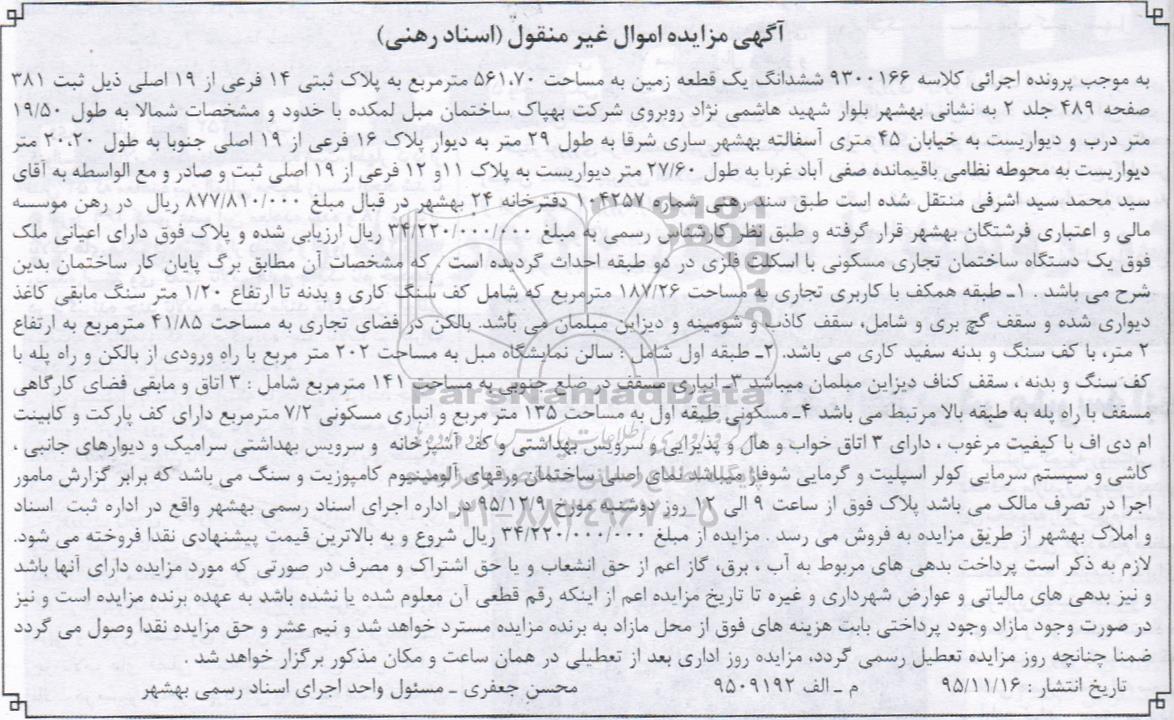 آگهی مزایده اموال غیر منقول (اسناد رهنی)
به موجب پرونده اجرائی کلاسه ۹۳۰۰۱۶۶ ششدانگ یک قطعه زمین به مساحت ۵۶۱،۷۰ مترمربع به پلاک ثبتی ۱۴ فرعی از ۱۹ اصلی ذیل ثبت ۳۸۱
صفحه ۴۸۹ جلد ۲ به نشانی بهشهر بلوار شهید هاشمی نژاد روبروی شرکت بهپاک ساختمان مبل لمکده با خدود و مشخصات شمالا به طول ۱۹/۵۰
متر درب و دیواریست به خیابان ۴۵ متری آسفالته بهشهر ساری شرقا به طول ۲۹ متر به دیوار پلاک ۱۶ فرعی از ۱۹ اصلی جنوبا به طول ۲۰،۲۰ متر
دیواریست به محوطه نظامی باقیمانده صفی آباد غربا به طول ۲۷/۶۰ متر دیواریست به پلاک ۱۱و ۱۲ فرعی از ۱۹ اصلی ثبت و صادر و مع الواسطه به آقای
سید محمد سید اشرفی منتقل شده است طبق سند رهنی شماره ۱۰۴۲۵۷ دفترخانه ۲۴ بهشهر در قبال مبلغ ۸۷۷/۸۱۰/۰۰۰ ریال در رهن موسسه
مالی و اعتباری فرشتگان بهشهر قرار گرفته و طبق نظر کارشناس رسمی به مبلغ ۳۴/۲۲۰/۰۰۰/۰۰۰ ریال ارزیابی شده و پلاک فوق دارای اعیانی ملک
فوق یک دستگاه ساختمان تجاری مسکونی با اسکلت فلزی در دو طبقه احداث گردیده است . که مشخصات آن مطابق برگ پایان کار ساختمان بدین
شرح می باشد . ۱ـ طبقه همکف با کاربری تجاری به مساحت ۱۸۷/۲۶ مترمربع که شامل کف سنگ کاری و بدنه تا ارتفاع ۱/۲۰ متر سنگ مابقی کاغذ
دیواری شده و سقف گچ بری و شامل، سقف کاذب و شومینه و دیزاین مبلمان می باشد. بالکن در فضای تجاری به مساحت ۴۱/۸۵ مترمربع به ارتفاع
۲ متر، با کف سنگ و بدنه سفید کاری می باشد. ۲ـ طبقه اول شامل : سالن نمایشگاه مبل به مساحت ۲۰۲ متر مربع با راه ورودی از بالکن و راه پله با
کف سنگ و بدنه ، سقف کناف دیزاین مبلمان میباشد ۳ـ انباری مسقف در ضلع جنوبی به مساحت ۱۴۱ مترمربع شامل : ۳ اتاق و مابقی فضای کارگاهی
مسقف با راه پله به طبقه بالا مرتبط می باشد ۴ـ مسکونی طبقه اول به مساحت ۱۳۵ متر مربع و انباری مسکونی ۷/۲ مترمربع دارای کف پارکت و کابینت
ام دی اف با کیفیت مرغوب ، دارای ۳ اتاق خواب و هال و پذیرایی و سرویس بهداشتی و کف آشپزخانه و سرویس بهداشتی سرامیک و دیوارهای جانبی ،
کاشی و سیستم سرمایی کولر اسپلیت و گرمایی شوفاژ میباشد نمای اصلی ساختمان ورقهای آلومینیوم کامپوزیت و سنگ می باشد که برابر گزارش مامور
اجرا در تصرف مالک می باشد پلاک فوق از ساعت ۹ الی ۱۲ روز دوشنبه مورخ ۹۵/۱۲/۹ در اداره اجرای اسناد رسمی بهشهر واقع در اداره ثبت اسناد
و املاک بهشهر از طریق مزایده به فروش می رسد . مزایده از مبلغ ۳۴/۲۲۰/۰۰۰/۰۰۰ ریال شروع و به بالاترین قیمت پیشنهادی نقدا فروخته می شود.
لازم به ذکر است پرداخت بدهی های مربوط به آب ، برق، گاز اعم از حق انشعاب و یا حق اشتراک و مصرف در صورتی که مورد مزایده دارای آنها باشد
و نیز بدهی های مالیاتی و عوارض شهرداری و غیره تا تاریخ مزایده اعم از اینکه رقم قطعی آن معلوم شده یا نشده باشد به عهده برنده مزایده است و نیز
در صورت وجود مازاد وجود پرداختی بابت هزینه های فوق از محل مازاد به برنده مزایده مسترد خواهد شد و نیم عشر و حق مزایده نقدا وصول می گردد
ضمنا چنانچه روز مزایده تعطیل رسمی گردد، مزایده روز اداری بعد از تعطیلی در همان ساعت و مکان مذکور برگزار خواهد شد .
تاریخ انتشار : ۹۵/۱۱/۱۶ م ـ الف ۹۵۰۹۱۹۲ محسن جعفری ـ مسئول واحد اجرای اسناد رسمی بهشهر
ParsNamadData
۰۲۱-۸۸۳۴۹۶۷۰-۵